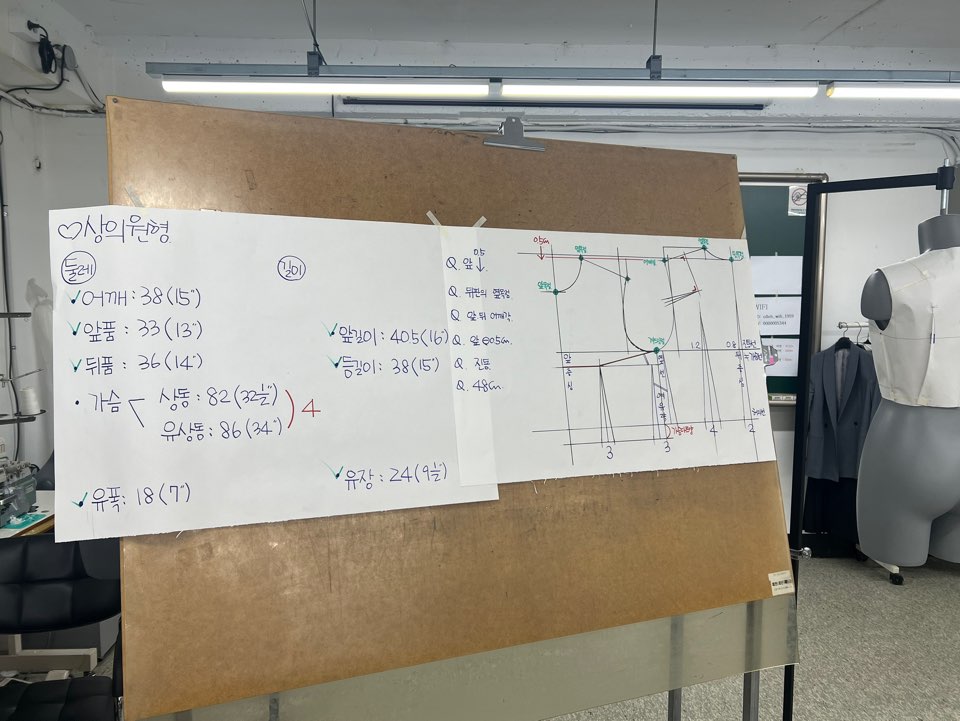 ♡상의원형
둘레
길이
어깨 : 38 (15")
앞품 : 33 (13")
뒤품 : 36 (14")
가슴
상동 : 82 (32½")
유상동 : 86 (34")
4
유폭 : 18 (7")
앞길이 : 40.5 (16")
등길이 : 38 (15")
유장 : 24 (9½")
Q. 앞 0.5↓
Q. 뒤판의 옆목점
Q. 앞 뒤 어깨각
Q. 앞⊖0.5cm
Q. 진동
Q. 48cm
0.5cm
앞중심
옆선
1.2
0.8
3
3
4
2
WIFI